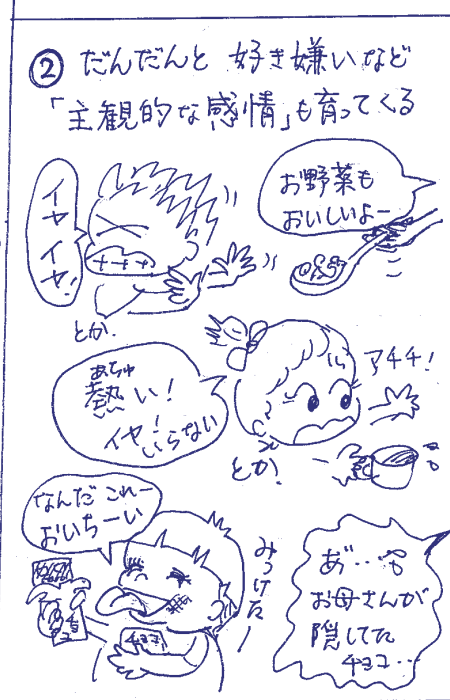 ② だんだんと 好き嫌いなど
「主観的な感情」も育ってくる
イヤイヤ!
お野菜も
おいしいよー
とか.
アチチ!
あちゅ
熱い!
イヤ!
いらない
とか.
なんだ これー
おいちーい
みつけたー
チョコ
チョコ
あ゛…
お母さんが
隠してた
チョコ…